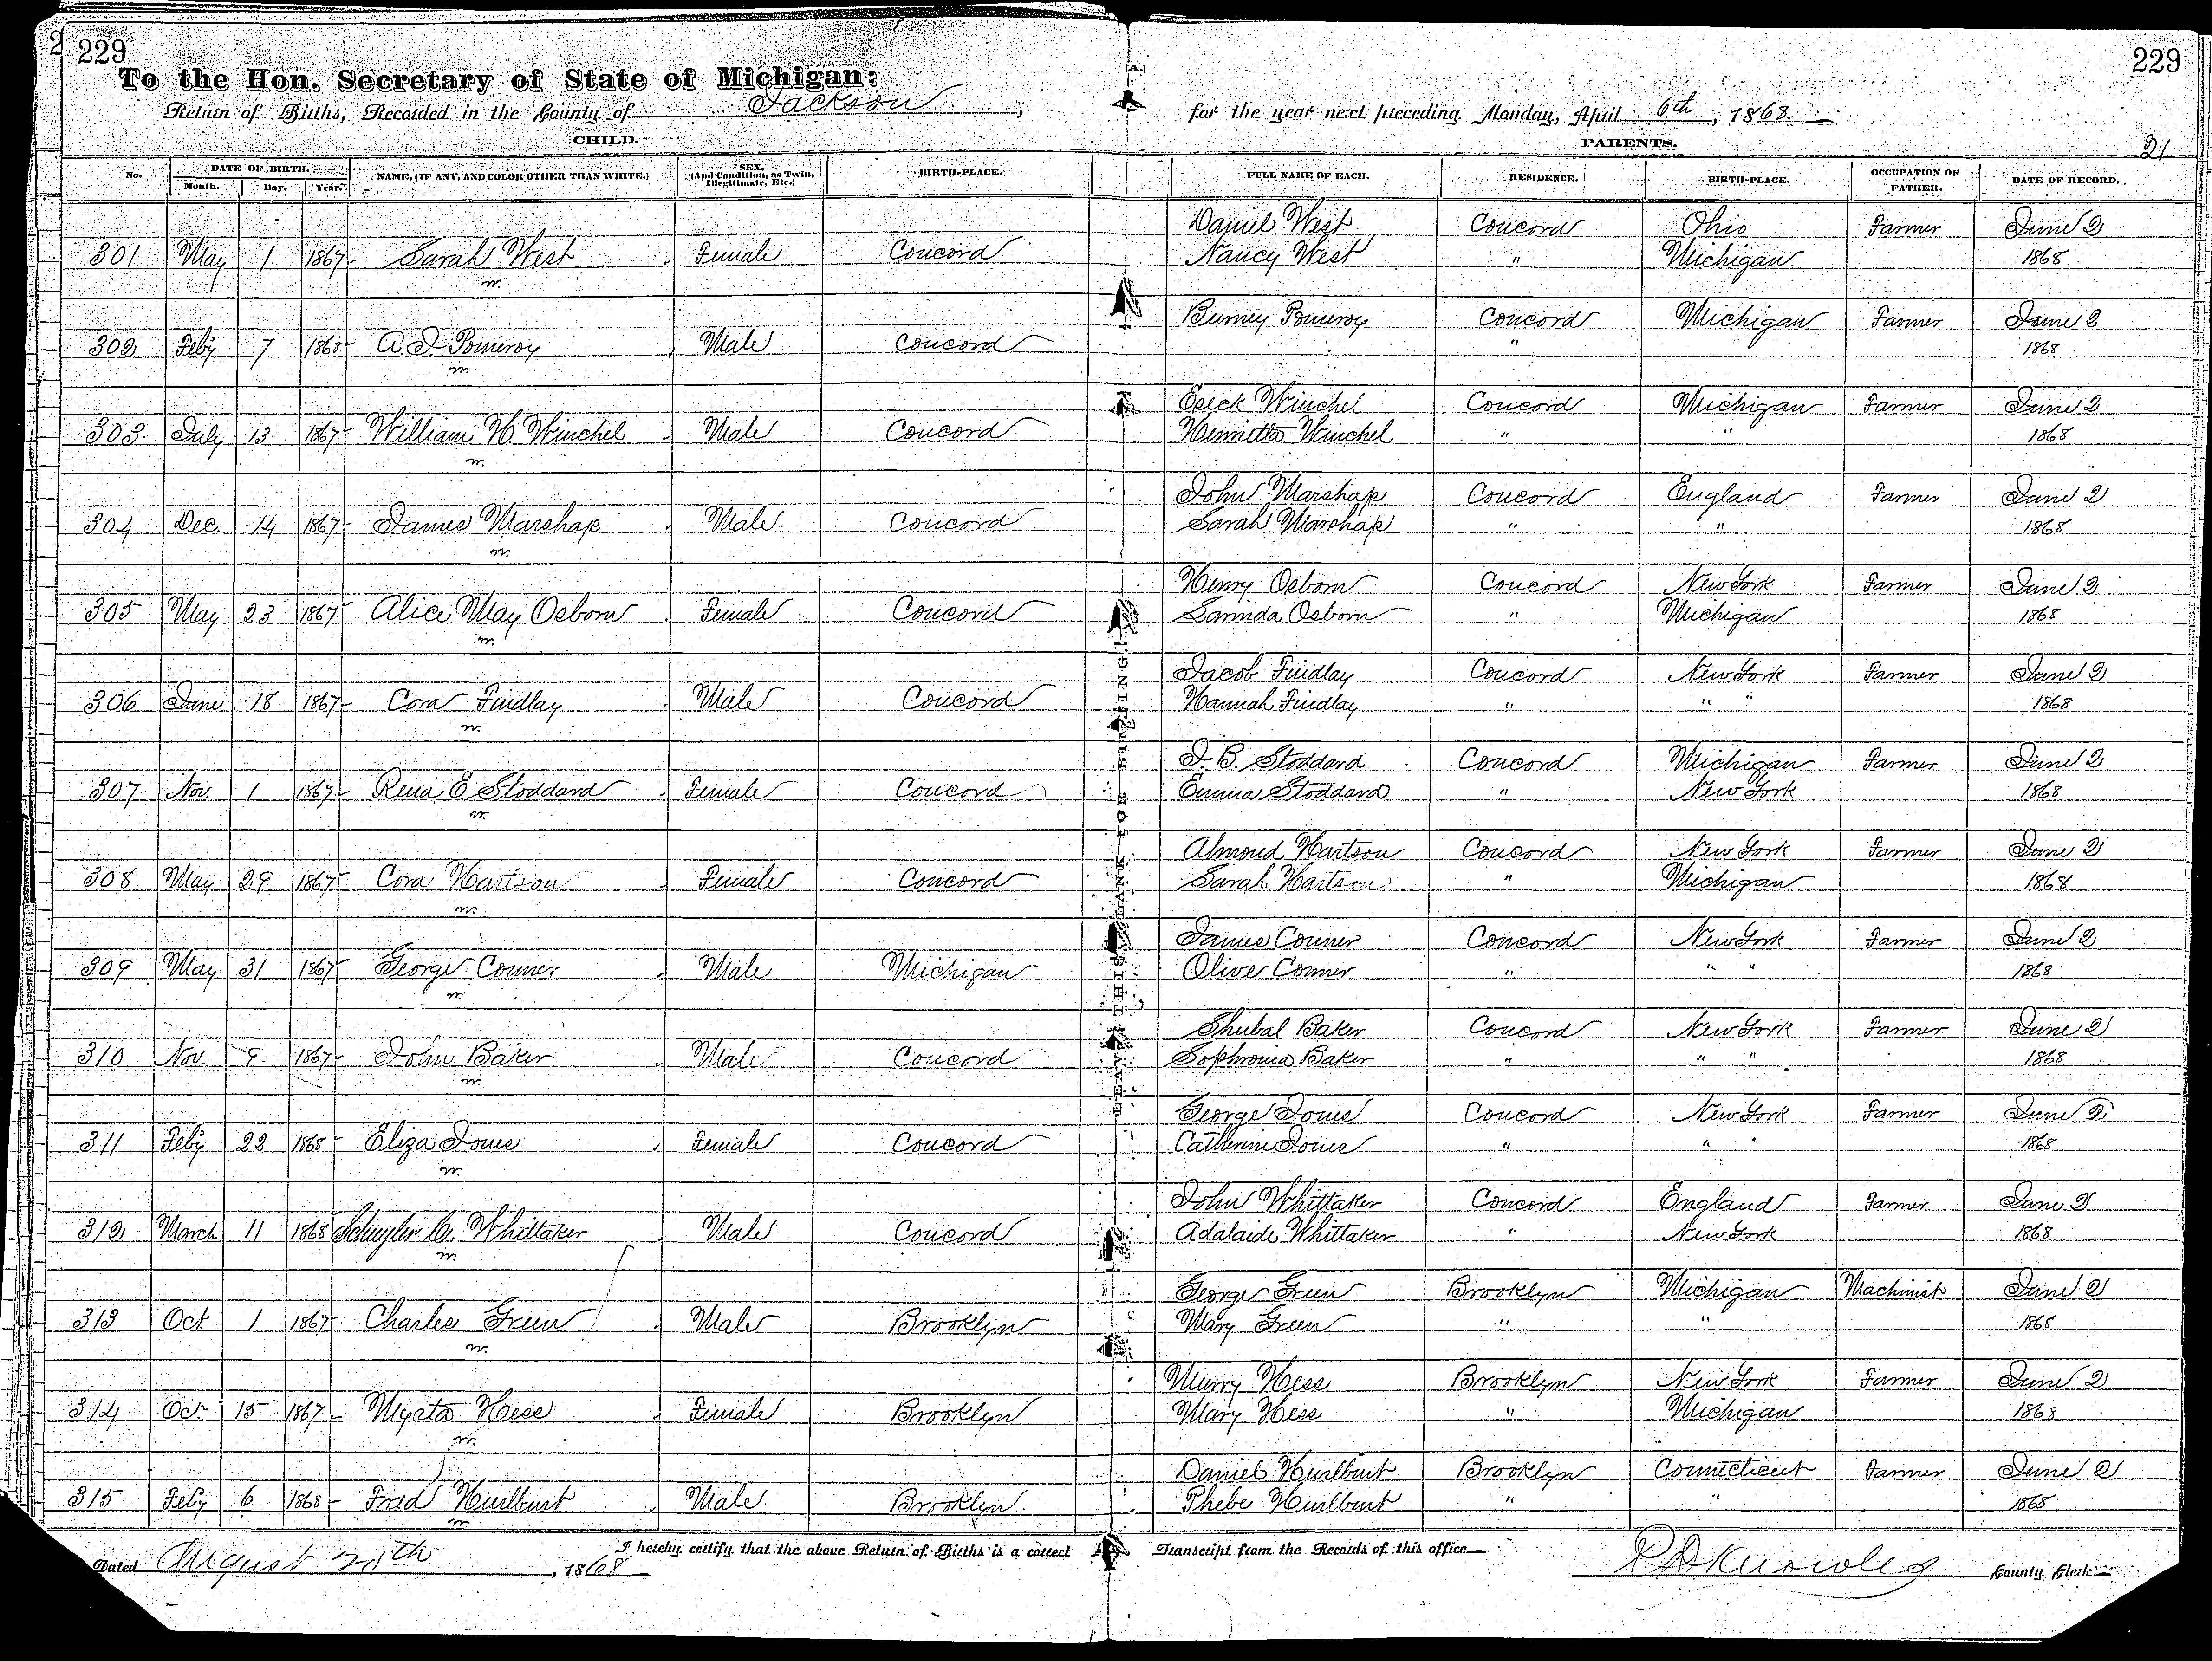 229
229
To the Hon. Secretary of State of Michigan:
Return of Births, Recorded in the County of Jackson, for the year next preceding Monday, April 6th, 1868.
CHILD. PARENTS. 21
No. DATE OF BIRTH. Month. Day. Year. NAME, (IF ANY, AND COLOR OTHER THAN WHITE.) SEX. (And Condition, as Twin, Illegitimate, Etc.) BIRTH-PLACE. FULL NAME OF EACH. RESIDENCE. BIRTH-PLACE. OCCUPATION OF FATHER. DATE OF RECORD.
Daniel West Concord Ohio Farmer June 2
301 May 1 1867 Sarah West Female Concord Nancy West " Michigan 1868
Burney Pomeroy Concord Michigan Farmer June 2
302 Feby 7 1868 A. I. Pomeroy Male Concord " 1868
Eseck Winchel Concord Michigan Farmer June 2
303 July 13 1867 William H. Winchel Male Concord Henrietta Winchel " " 1868
John Marshap Concord England Farmer June 2
304 Dec. 14 1867 James Marshap Male Concord Sarah Marshap " " 1868
Henry Osborn Concord New York Farmer June 2
305 May 23 1867 Alice May Osborn Female Concord Osborn " Michigan 1868
Jacob Findlay Concord New York Farmer June 2
306 June 18 1867 Cora Findlay Male Concord Hannah Findlay " " " 1868
I. B. Stoddard Concord Michigan Farmer June 2
307 Nov. 1 1867 Rena E Stoddard Female Concord Emma Stoddard " New York 1868
Almond Hartson Concord New York Farmer June 2
308 May 29 1867 Cora Hartson Female Concord Sarah Hartson " Michigan 1868
James Conner Concord New York Farmer June 2
309 May 31 1867 George Conner Male Michigan Olive Conner " " " 1868
Shubal Baker Concord New York Farmer June 2
310 Nov. 9 1867 John Baker Male Concord Sophronia Baker " " " 1868
George Jones Concord New York Farmer June 2
311 Feby 22 1868 Eliza Jones Female Concord Catherine Jones " " " 1868
John Whittaker Concord England Farmer June 2
312 March 11 1868 Schuyler C. Whittaker Male Concord Adalaide Whittaker " New York 1868
George Green Brooklyn Michigan Machinist June 2
313 Oct 1 1867 Charles Green Male Brooklyn Mary Green " " 1868
Murry Hess Brooklyn New York Farmer June 2
314 Oct. 15 1867 Myrta Hess Female Brooklyn Mary Hess " Michigan 1868
Daniel Hurlburt Brooklyn Connecticut Farmer June 2
315 Feby 6 1868 Fred Hurlburt Male Brooklyn Phebe Hurlburt " " 1868
LEAVE THIS BLANK FOR BINDING.
I hereby certify that the above Return of Births is a correct Transcript from the Records of this office
Dated August, 1868 R D Knowles County Clerk